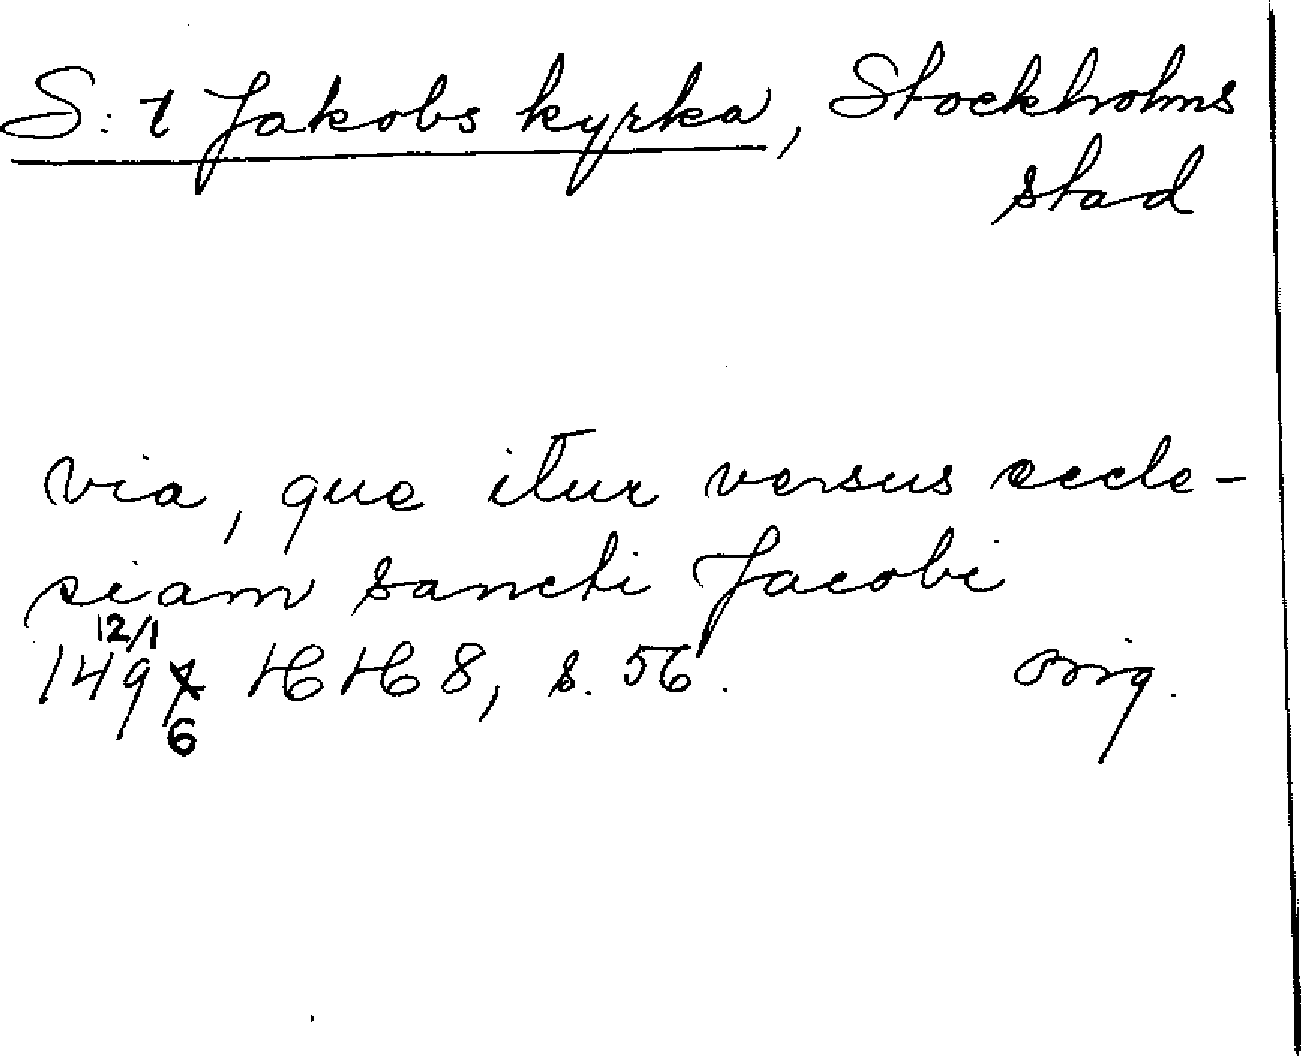 S:t Jakobs kyrka, Stockholms
stad
via, que itur versus eccle-
siam sancti Jacobi
12/1
149 HH 8, s. 56. orig.
6